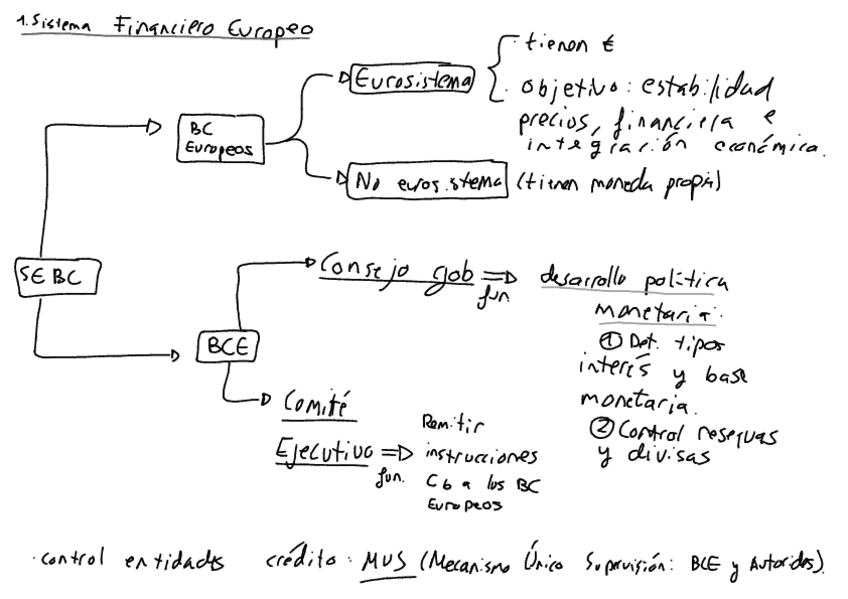 1. Sistema Financiero Europeo
BC
Europeos
Eurosistema
· tienen €
· objetivo: estabilidad
precios, financiera e
integración económica.
No eurosistema (tienen moneda propia)
SEBC
BCE
Consejo gob => desarrollo política
fun.
monetaria:
① Det. tipos
interés y base
monetaria.
② Control reservas
y divisas
Comité
Ejecutivo =>
fun.
Remitir
instrucciones
CG a los BC
Europeos
· control entidades crédito: MUS (Mecanismo Único Supervisión: BCE y Autorides).